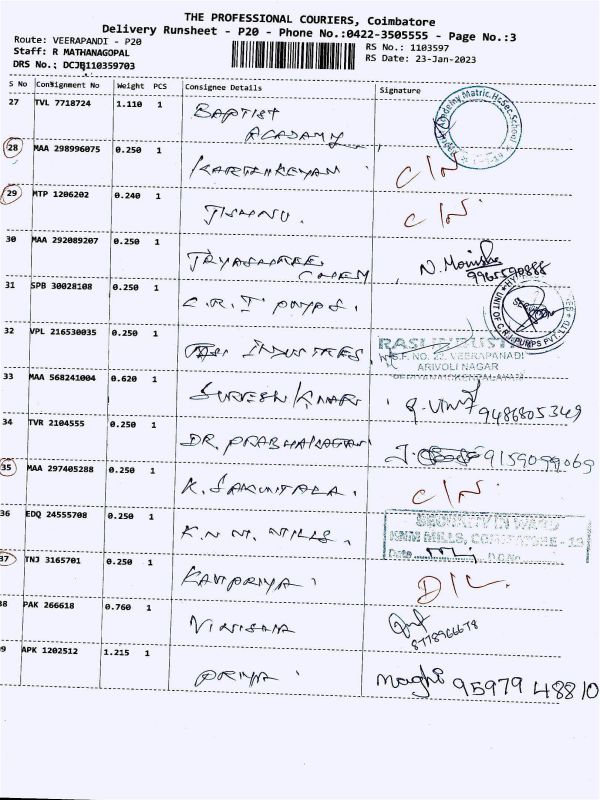 THE PROFESSIONAL COURIERS, Coimbatore
Delivery Runsheet - P20 - Phone No.:0422-3505555 - Page No.:3
Route: VEERAPANDI - P20
RS No.: 1103597
Staff: R MATHANAGOPAL
RS Date: 23-Jan-2023
DRS No.: DCJB110359703
S No Consignment No Weight PCS Consignee Details Signature
27 TVL 7718724 1.110 1 BAPTIST
ACADAMY
28 MAA 298996075 0.250 1 KARTHIKEYAN C/N
29 MTP 1206202 0.240 1 JISHNU. C/N
30 MAA 292089207 0.250 1 JAYASHREE
CHEM N. Monisha
9965590888
31 SPB 30028108 0.250 1 C.R.I PUMPS.
UNIT OF C.R.I. PUMPS PVT. LTD
32 VPL 216530035 0.250 1 INDUSTRIES.
S.F. NO. 22, VEERAPANADI
ARIVOLI NAGAR
33 MAA 568241004 0.620 1 SURESH KUMAR 9486805349
34 TVR 2104555 0.250 1 DR. PRABHAKARAN 9159099069
35 MAA 297405288 0.250 1 K. SAKUNTALA. C/N
36 EDQ 24555708 0.250 1 K.N.M. MILLS.
SECURITY IN WARD
KNM MILLS, COIMBATORE - 19
Date
37 TNJ 3165701 0.250 1 KAVIPRIYA D/L.
38 PAK 266618 0.760 1 VINISHA
8778966678
39 APK 1202512 1.215 1 PRIYA Maghi 95979 48810